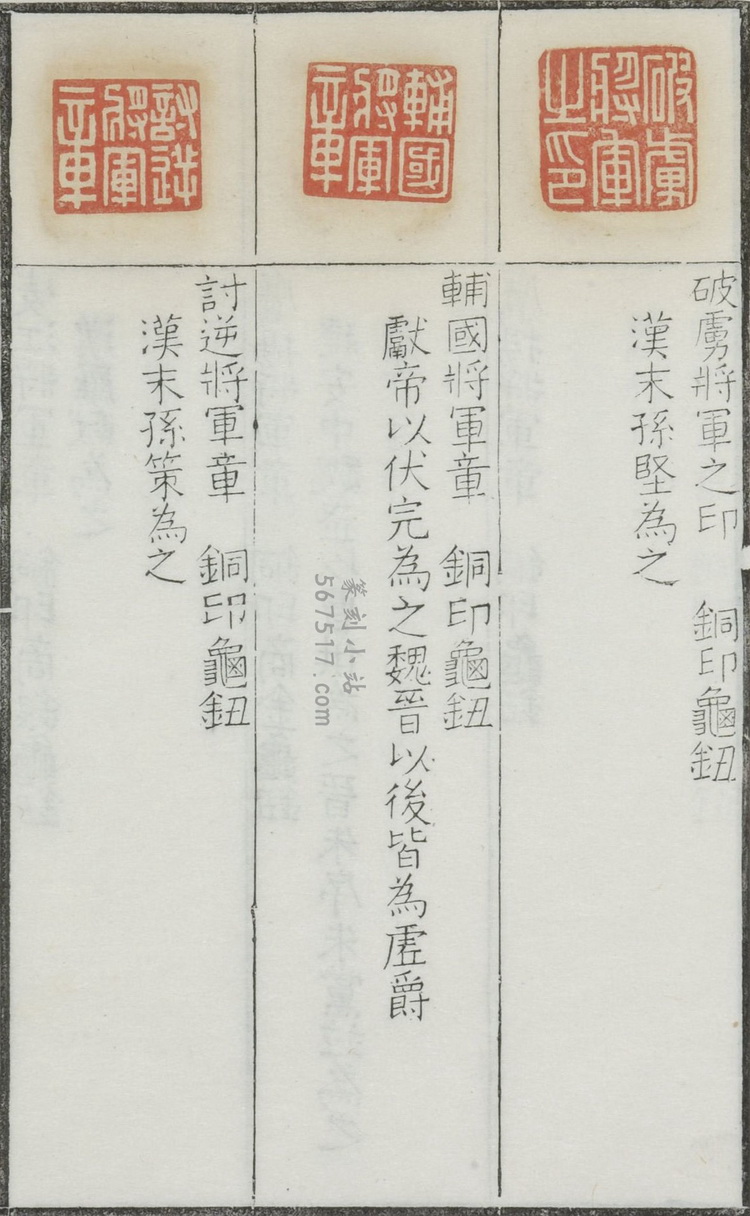 破虜將軍之印
破虜將軍之印 銅印龜鈕
漢末孫堅為之
輔國將軍章
輔國將軍章 銅印龜鈕
獻帝以伏完為之魏晉以後皆為虛爵
討逆將軍章
討逆將軍章 銅印龜鈕
漢末孫策為之
篆刻小站
567517.com